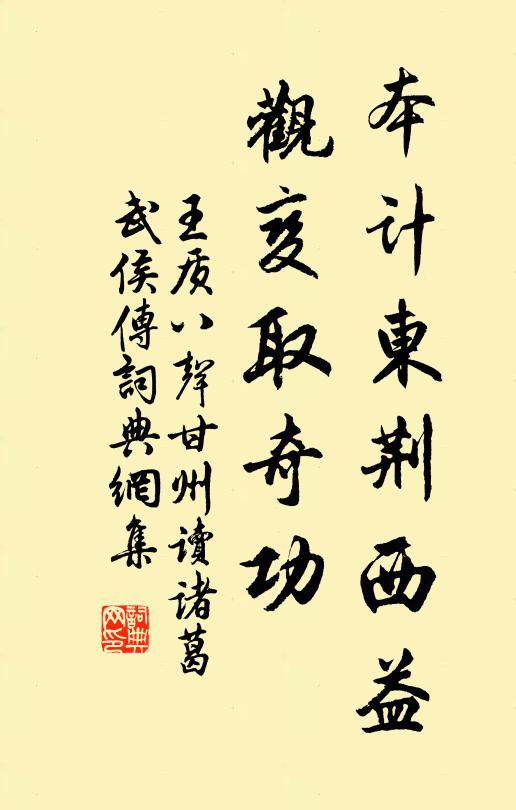 本计東荆西益
觀变取奇功
王质八聲甘州讀诸葛
武侯傳詞典網集
詞典网印